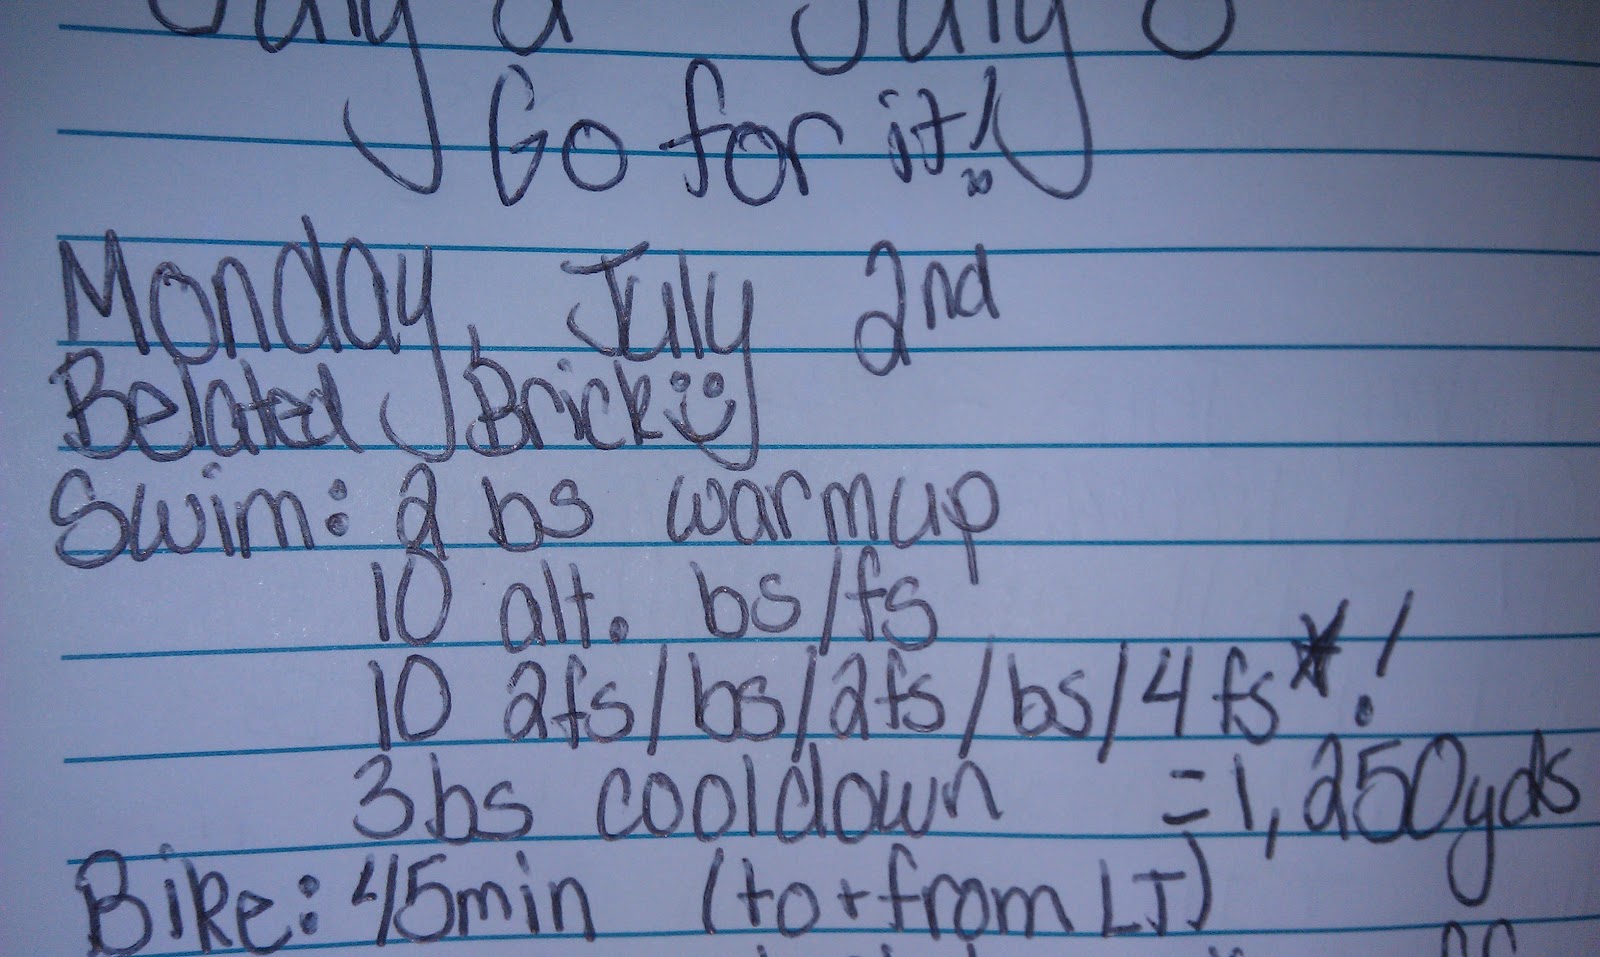 July 2 July 8
Go for it!
Monday, July 2nd
Belated Brick
Swim: 2 bs warmup
10 alt. bs/fs
10 2fs/bs/2fs/bs/4fs*!
3bs cooldown =1,250yds
Bike: 45min (to+from LJ)